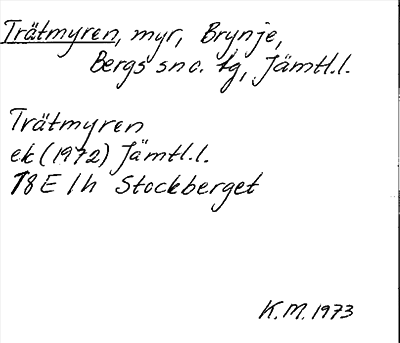 Trätmyren, myr, Brynje,
Bergs sn o. tg, Jämtl.l.
Trätmyren
ek (1972) Jämtl.l.
18E1h Stockberget
K.M. 1973